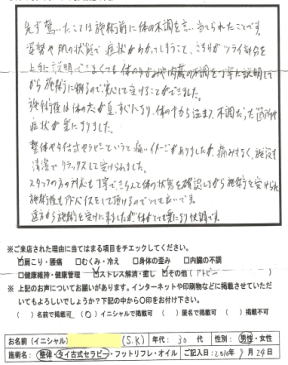 先ず驚いたことは施術前に体の不調を言い当てられたことです。
姿勢や肌の状態で症状がわかってしまうこと、こちらがツライ部分を
上手に説明できなくても体の歪みや内臓の不調を丁寧に説明して
から施術に移るので安心して受けることができました。
施術後は体の
症状が楽になりました。
整体やタイ古式セラピーというと痛いイメージがありましたが痛みもなく、施設も
清潔でリラックスして受けられました。
スタッフの方の対応も丁寧できちんと体の状態を確認しながら施術を受けられ
施術後もアドバイスをして頂けるので
遠方から施術を受けに来ましたが体がとても楽になり快調です。
※ご来店された理由に当てはまる項目をチェックしてください。
肩こり・腰痛 □むくみ・冷え □身体の歪み □内臓の不調
□健康維持・健康管理 ストレス解消・癒し その他(アトピー )
※ 上記のお声についてお願いがあります。インターネットや印刷物などに掲載させていただ
いてもよろしいでしょうか?下記の中から〇印をお付け下さい。
( )名前で掲載可 (〇)イニシャルで掲載可 ( )匿名で掲載可 ( )掲載不可
お名前(イニシャル) (S.K) 年代:30代 性別:男性・女性
施術名:整体・タイ古式セラピー・フットリフレ・オイル ご記入日:2010年9月24日